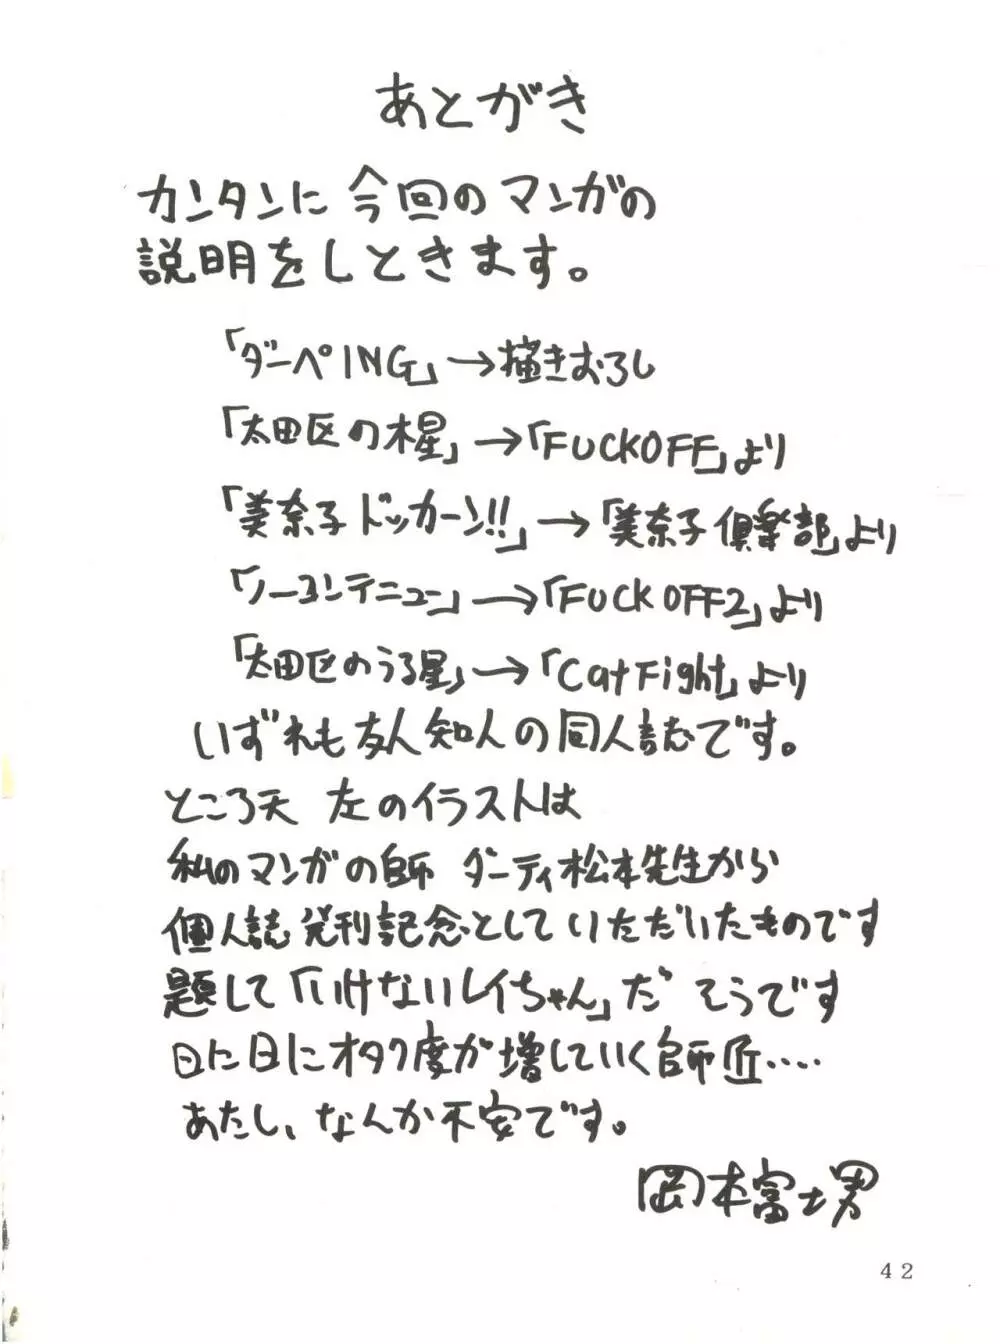 あとがき
カンタンに今回のマンガの
説明をしときます。
「ダーペING」→描きおろし
「太田区の木星」→「FUCKOFF」より
「美奈子ドッカーン!!」→「美奈子倶楽部」より
「ノーコンテニュー」→「FUCK OFF2」より
「太田区のうる星」→「CatFight」より
いずれも友人知人の同人誌です。
ところ天 左のイラストは
私のマンガの師 ダーティ松本先生から
個人誌発刊記念としていただいたものです
題して「いけないレイちゃん」だ そうです
日に日にオタク度が増していく師匠‥‥
あたし、なんか不安です。
岡本富士男
42